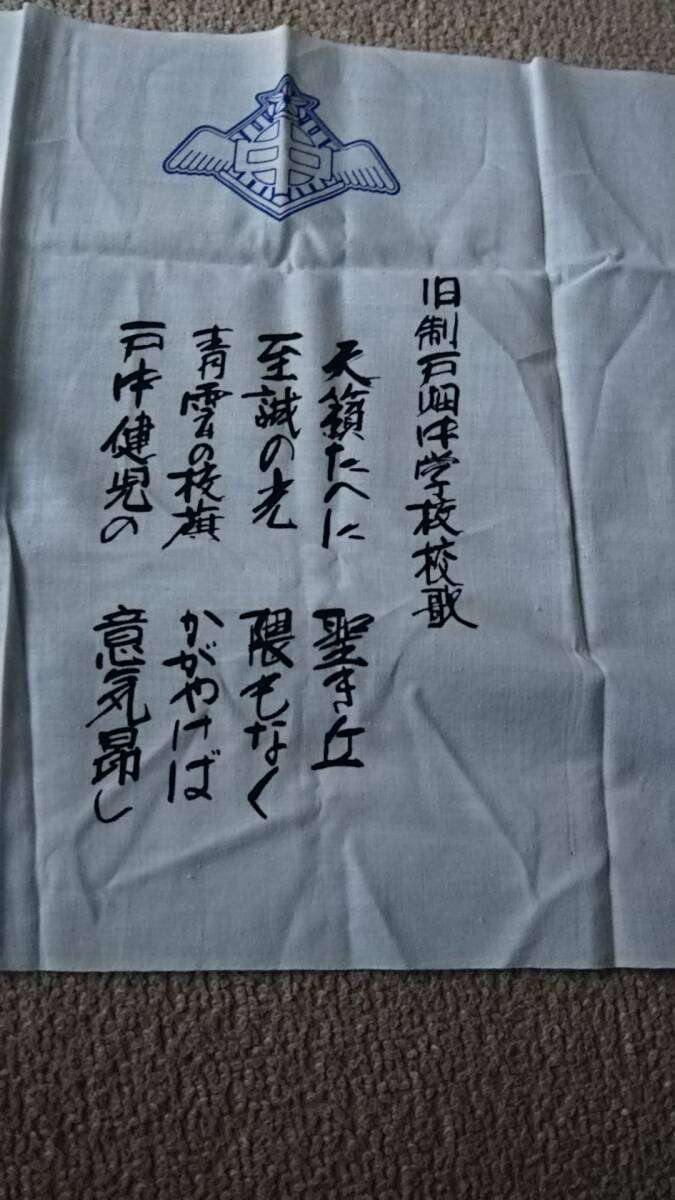 中
旧制戸畑中学校校歌
天籟たへに 聖き丘
至誠の光 隈もなく
青雲の校旗 かがやけば
戸中健児の 意気昂し